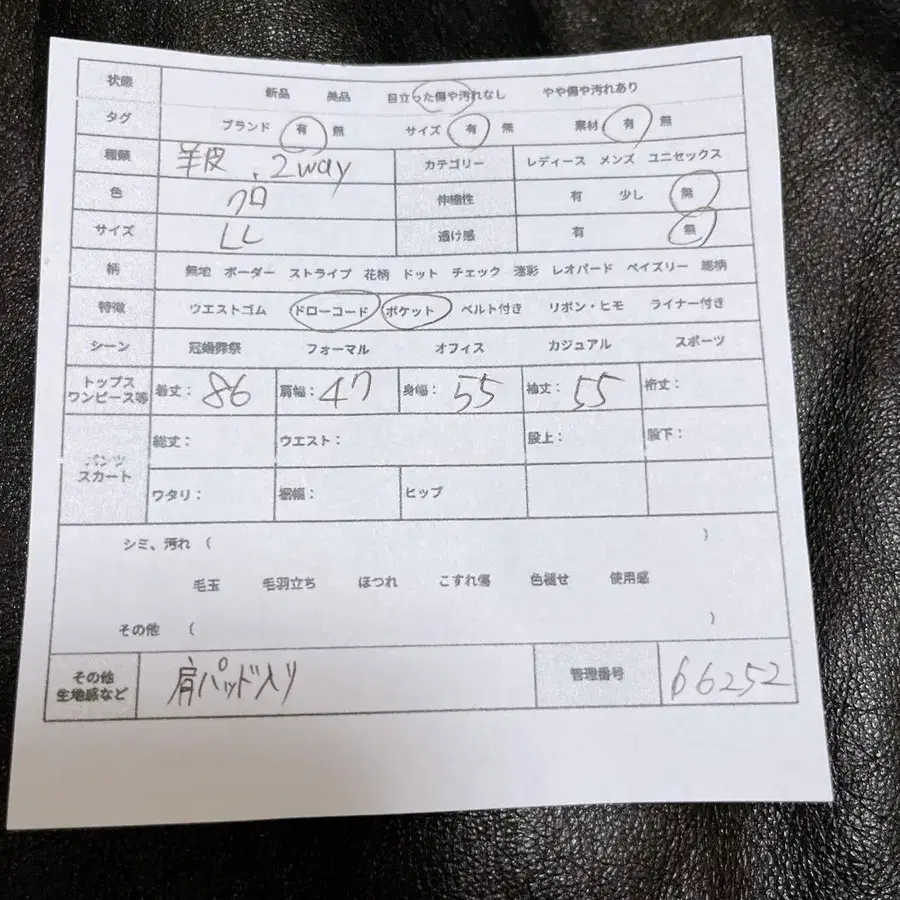 状態 新品 美品 目立った傷や汚れなし やや傷や汚れあり
タグ ブランド 有 無 サイズ 有 無 素材 有 無
種類 羊皮、2way カテゴリー レディース メンズ ユニセックス
色 クロ 伸縮性 有 少し 無
サイズ LL 透け感 有 無
柄 無地 ボーダー ストライプ 花柄 ドット チェック 迷彩 レオパード ペイズリー 総柄
特徴 ウエストゴム ドローコード ポケット ベルト付き リボン・ヒモ ライナー付き
シーン 冠婚葬祭 フォーマル オフィス カジュアル スポーツ
トップス
ワンピース等 着丈：86 肩幅：47 身幅：55 袖丈：55 裄丈：
パンツ
スカート
総丈： ウエスト： 股上： 股下：
ワタリ： 裾幅： ヒップ
シミ、汚れ （ ）
毛玉 毛羽立ち ほつれ こすれ傷 色褪せ 使用感
その他 （ ）
その他
生地感など 肩パッド入り 管理番号 66252